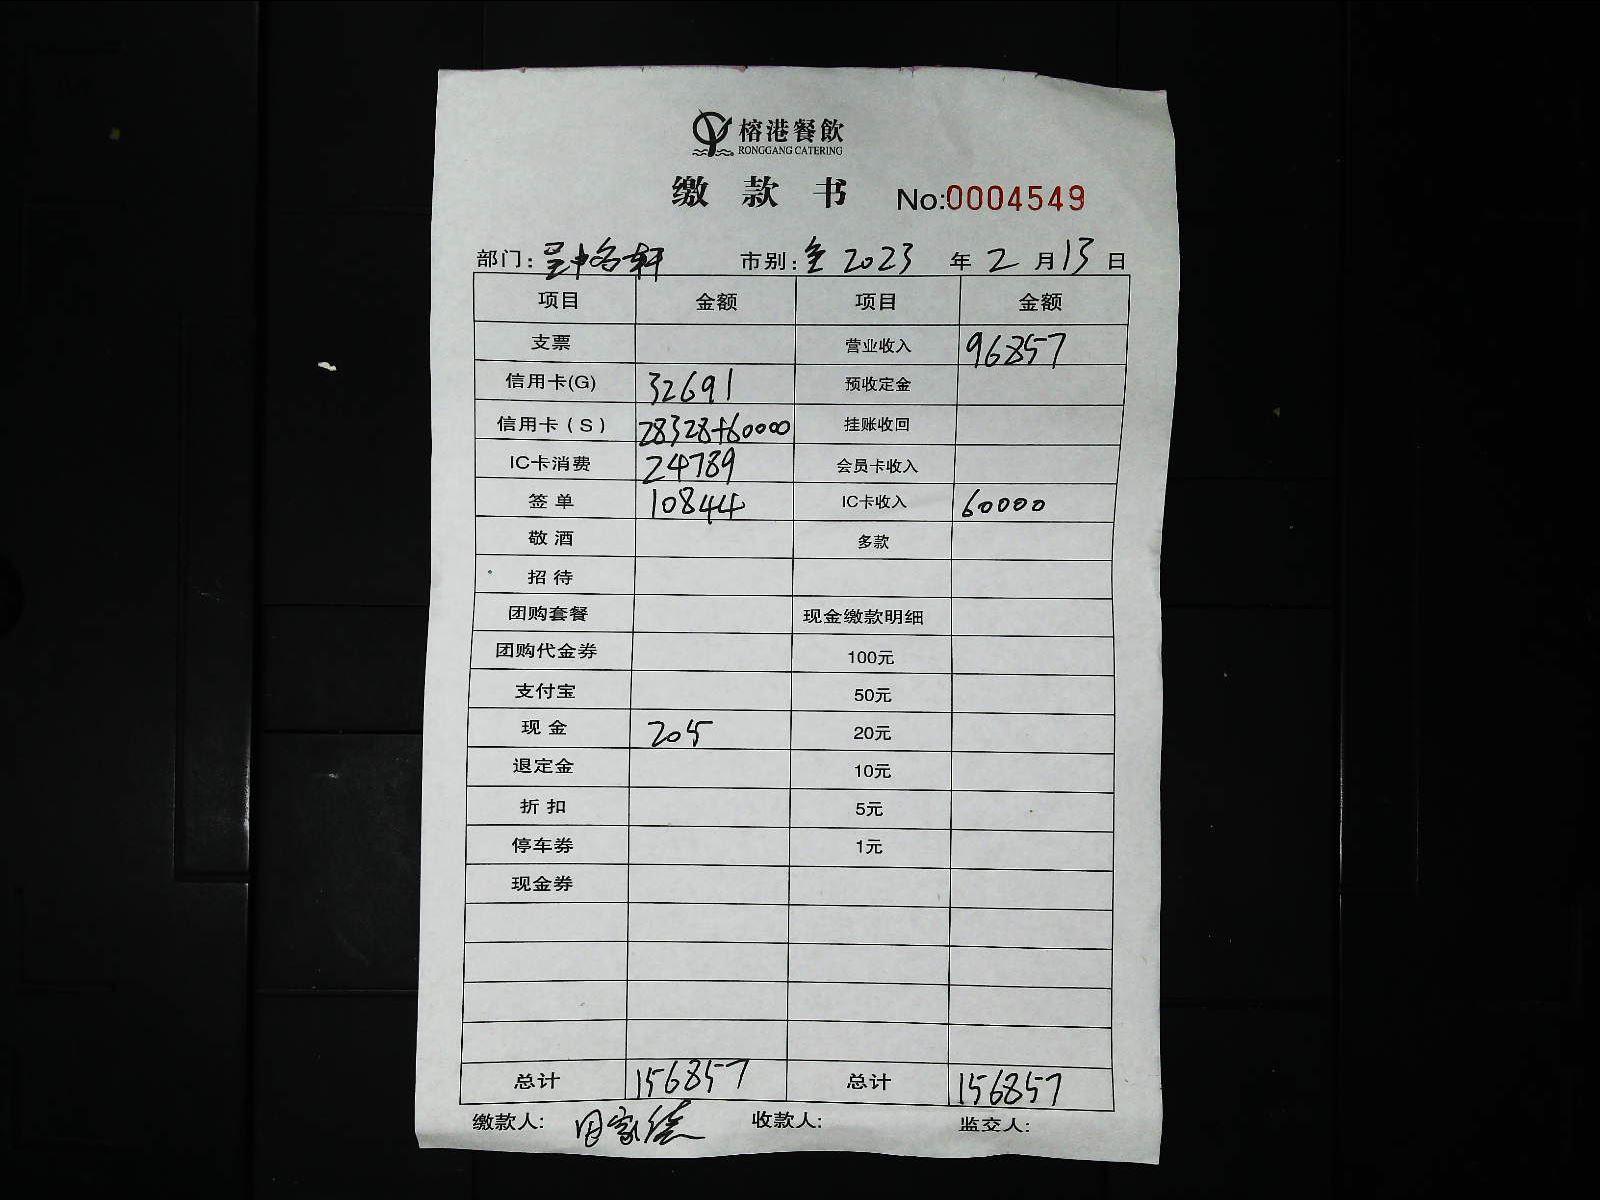 榕港餐飲
RONGGANG CATERING
缴款书 No:0004549
部门: 市别: 全 2023 年 2 月 13 日
项目 金额 项目 金额
支票 营业收入 96857
信用卡(G) 32691 预收定金
信用卡(S) 28328+60000 挂账收回
IC卡消费 24789 会员卡收入
签单 10844 IC卡收入 60000
敬酒 多款
招待
团购套餐 现金缴款明细
团购代金券 100元
支付宝 50元
现金 205 20元
退定金 10元
折扣 5元
停车券 1元
现金券
总计 156857 总计 156857
缴款人: 收款人: 监交人: